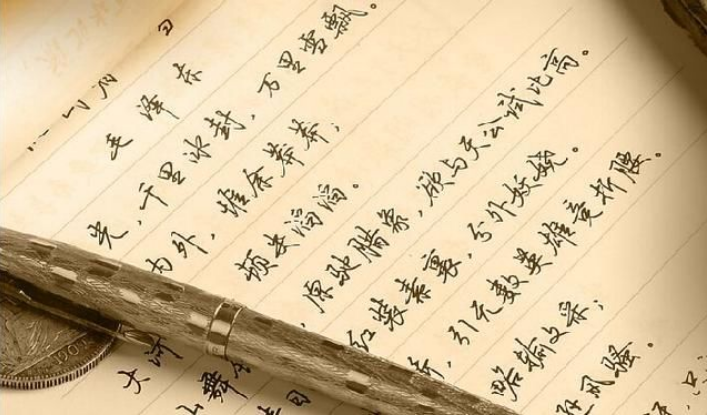 毛泽东
光,千里冰封,万里雪飘。
内外,惟余莽莽,
大河 顿失滔滔。
山舞 原驰腊象,欲与天公试比高。
日 红装素裹,分外妖娆。
引无数英雄竞折腰。
略输文采;
风骚。